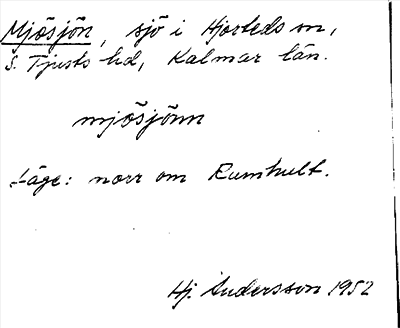 Mjösjön, sjö i Hjorteds sn,
S. Tjusts hd, Kalmar län.
mjösjönn
Läge: norr om Rumhult.
Hj. Andersson 1952